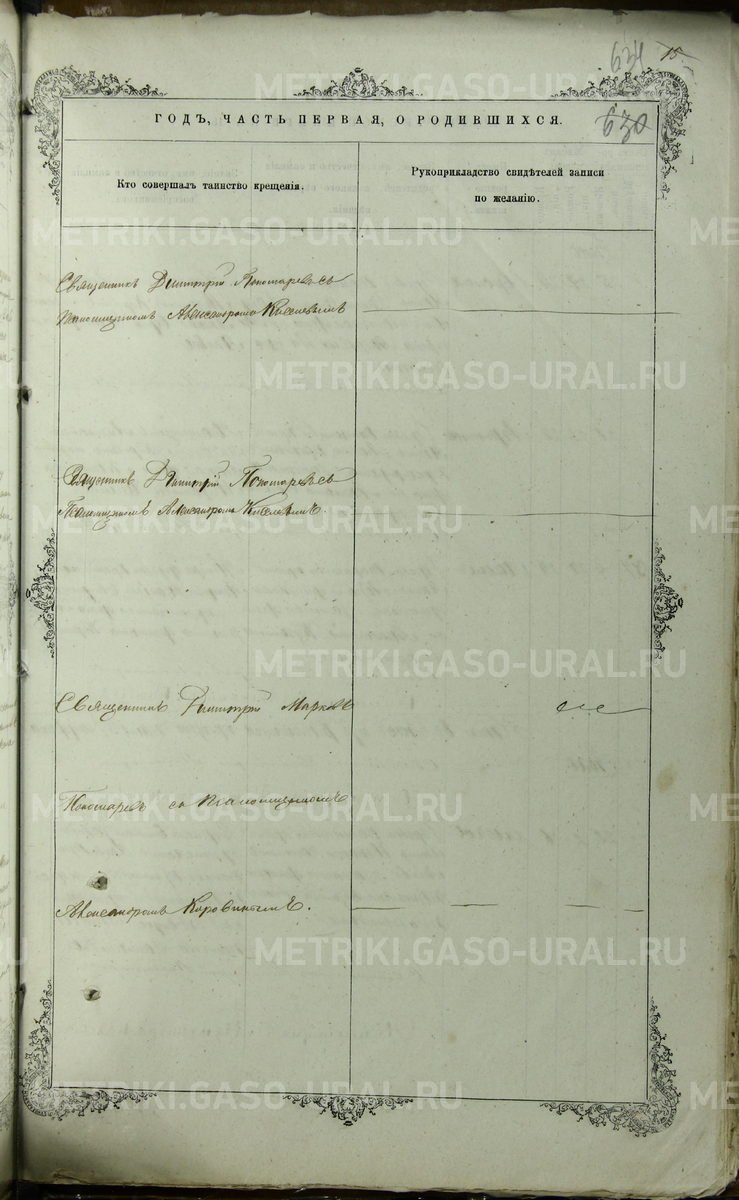 634 15
630
ГОДЪ, ЧАСТЬ ПЕРВАЯ, О РОДИВШИХСЯ.
Кто совершалъ таинство крещенія.
Рукоприкладство свидѣтелей записи
по желанію.
Священникъ Димитрій Пономаревъ съ
псаломщикомъ Александромъ Киселевымъ
Священникъ Димитрій Пономаревъ съ
Псаломщикомъ Александромъ Киселевымъ.
Священникъ Димитрій
Пономаревъ съ псаломщикомъ
Александромъ
METRIKI.GASO-URAL.RU